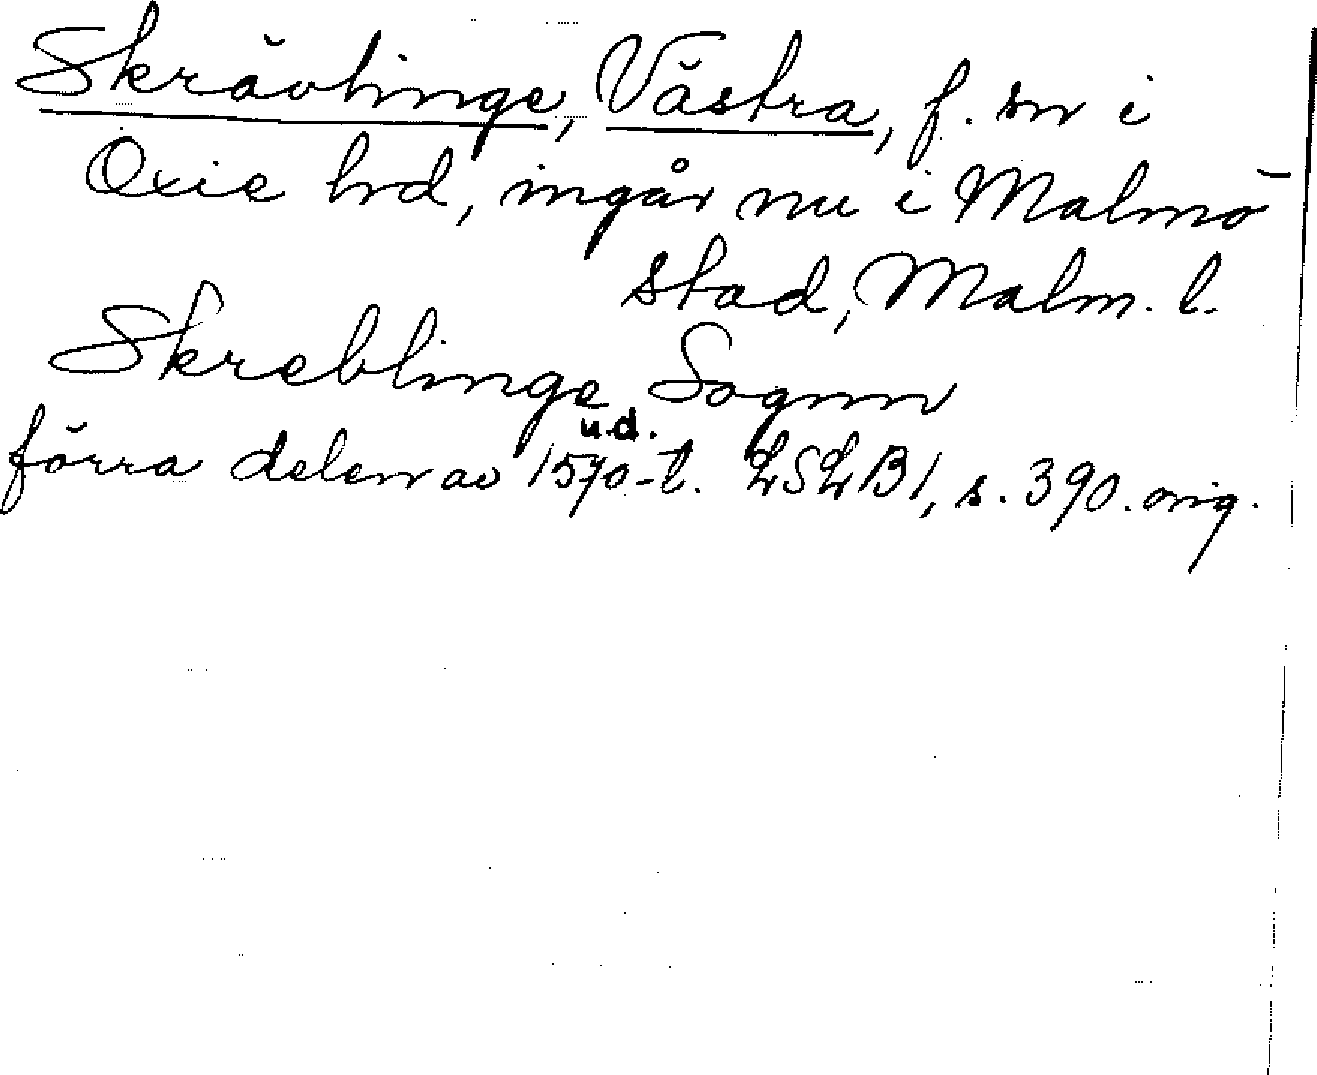 Skrävlinge, Västra, f. sn i
Oxie hrd, ingår nu i Malmö
stad, Malm. l.
Skreblinge Sognn
u.d.
förra delen av 1570-t. LSLB1, s. 390. orig.